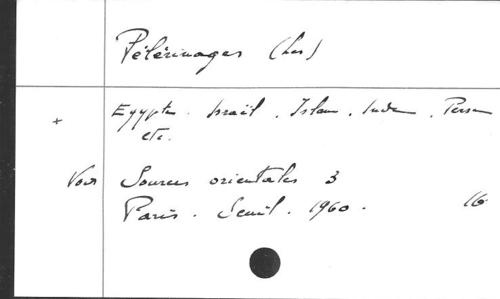 Pélérinages (Les)
+ Egypte . Israël . Islam . Inde . Perse
etc.
Voir Sources orientales 3
Paris . Seuil . 1960 . 16